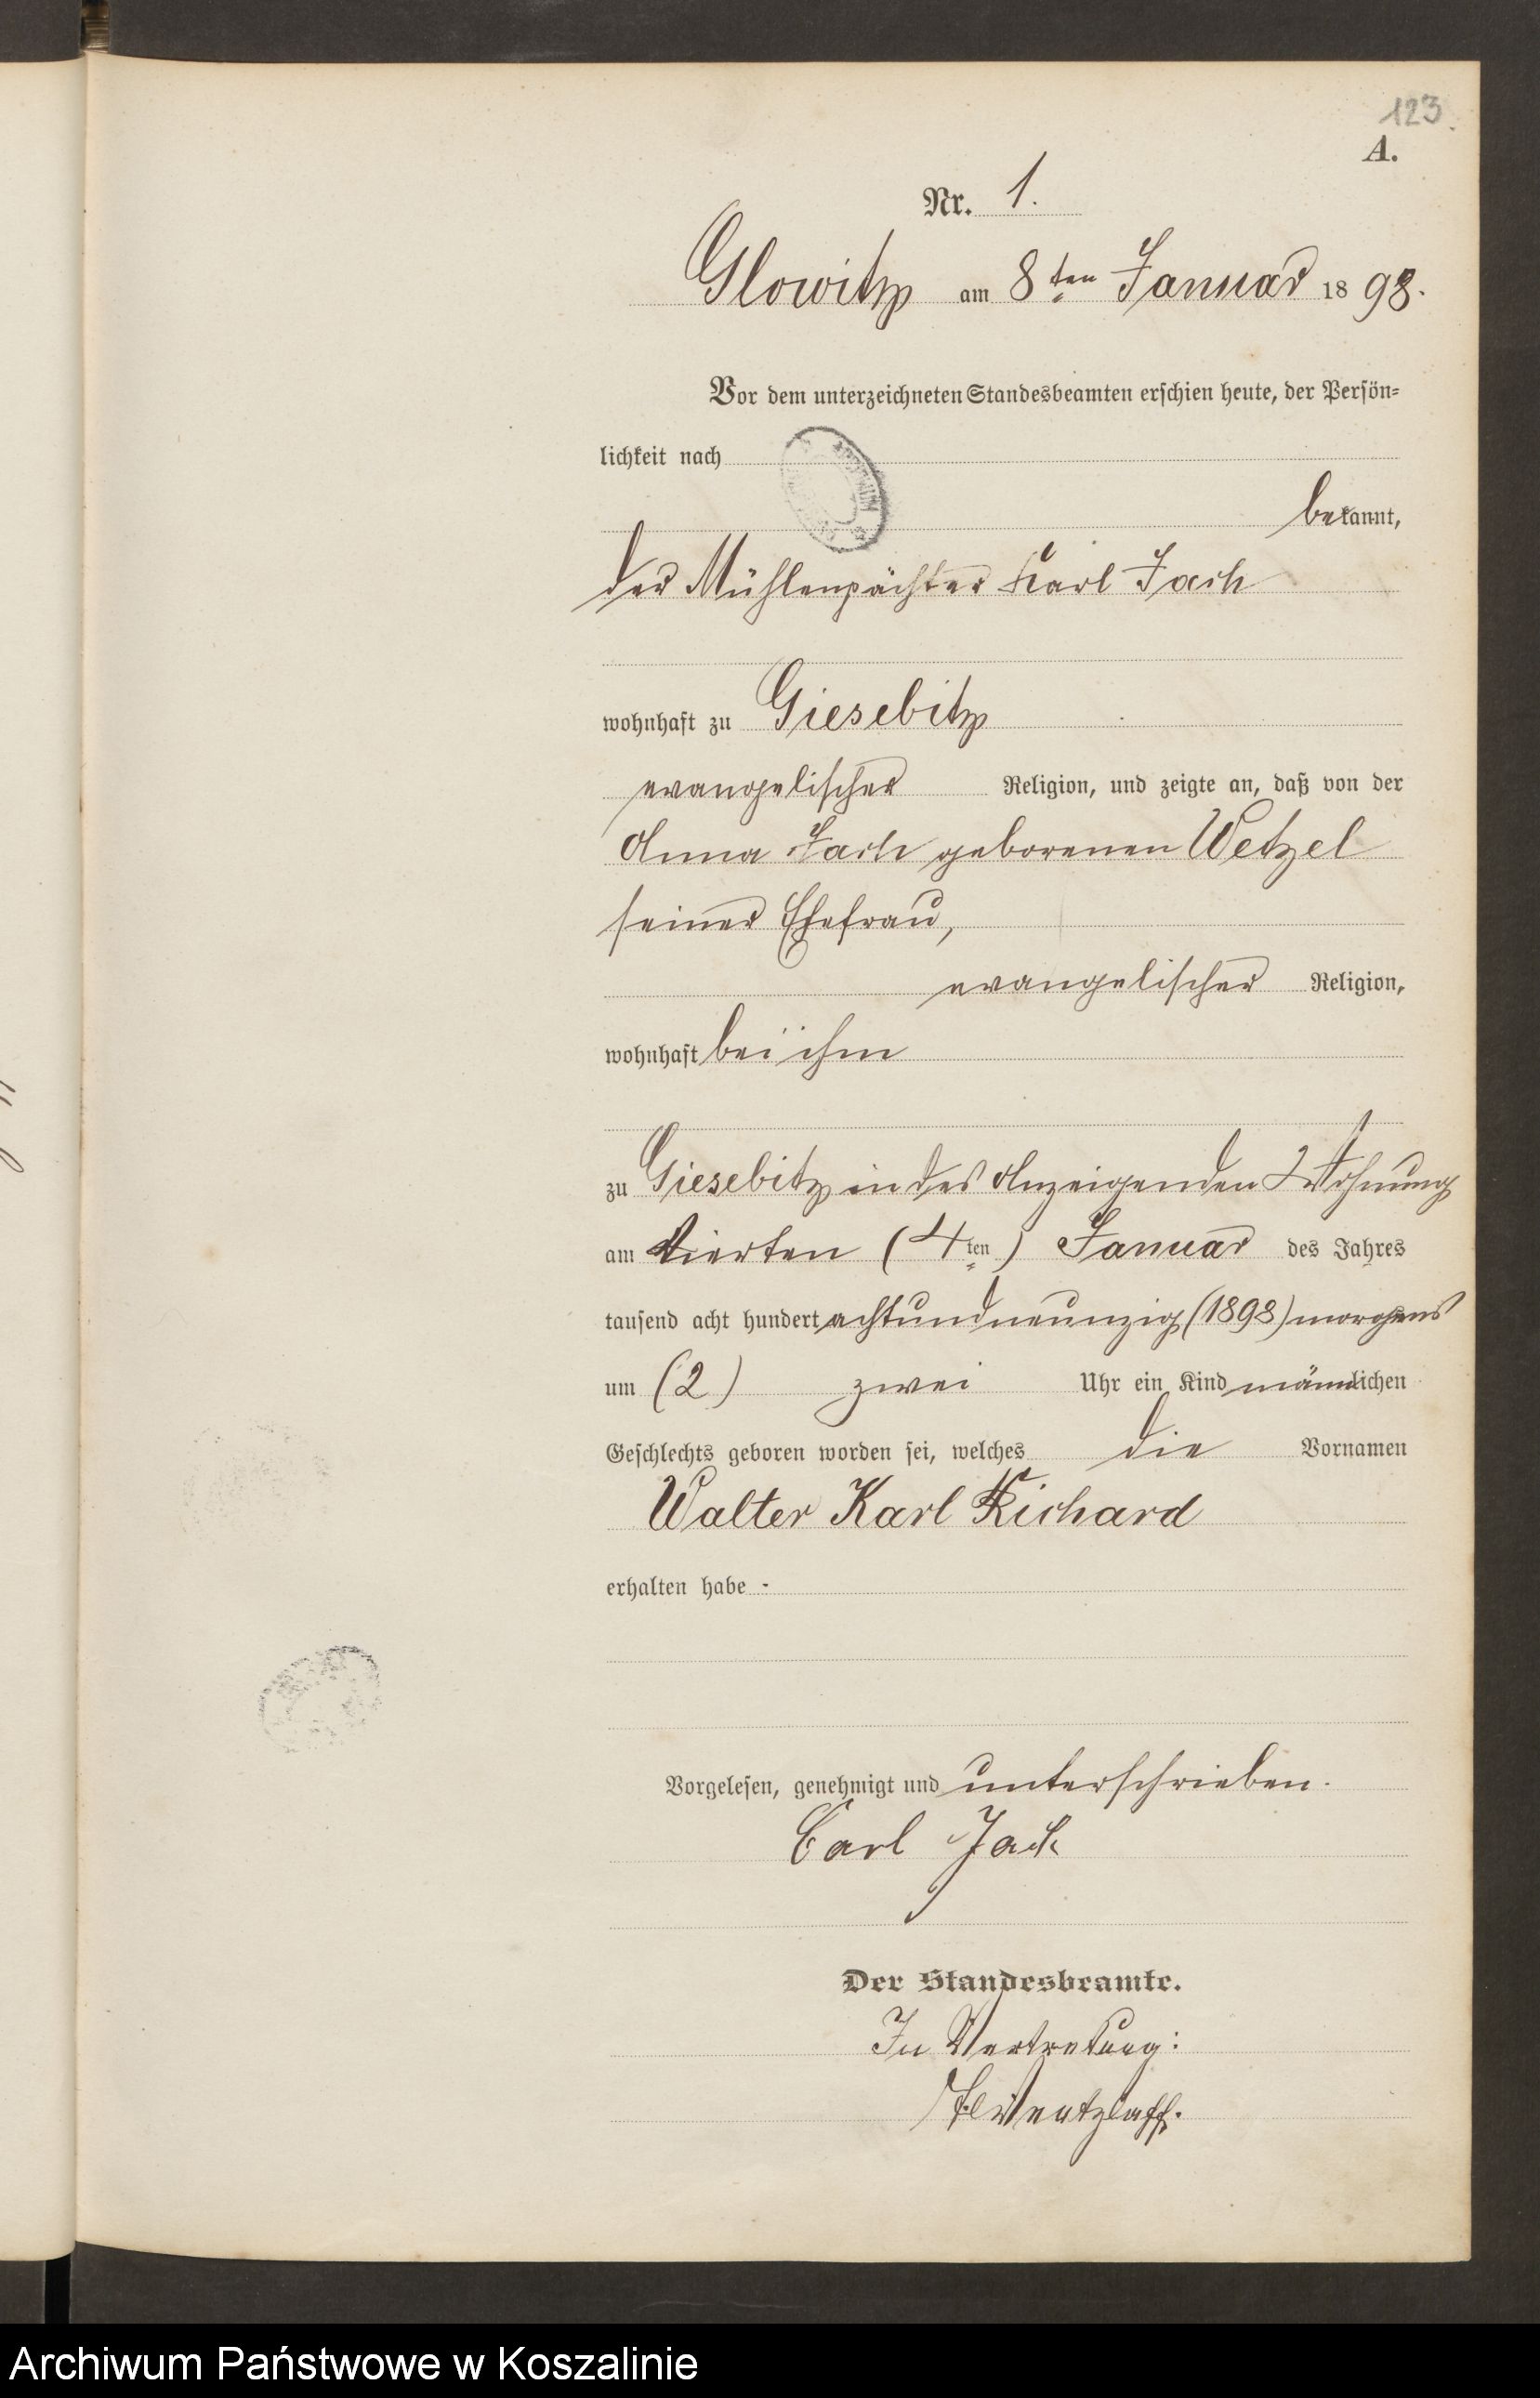 123.
A.
Nr. 1.
Glowitz am 8ten Januar 1898.
Vor dem unterzeichneten Standesbeamten erschien heute, der Persön=
lichkeit nach
bekannt,
der Mühlenpächter Karl Jach
wohnhaft zu Giesebitz
evangelischer Religion, und zeigte an, daß von der
Anna Jach geborenen Wetzel
seiner Ehefrau,
evangelischer Religion,
wohnhaft bei ihm
zu Giesebitz in des Anzeigenden Wohnung
am vierten (4ten) Januar des Jahres
tausend acht hundert achtundneunzig (1898) morgens
um (2) zwei Uhr ein Kind männlichen
Geschlechts geboren worden sei, welches die Vornamen
Walter Karl Richard
erhalten habe -
Vorgelesen, genehmigt und unterschrieben.
Carl Jach
Der Standesbeamte.
In Vertretung:
Wentzlaff.
Archiwum Państwowe w Koszalinie